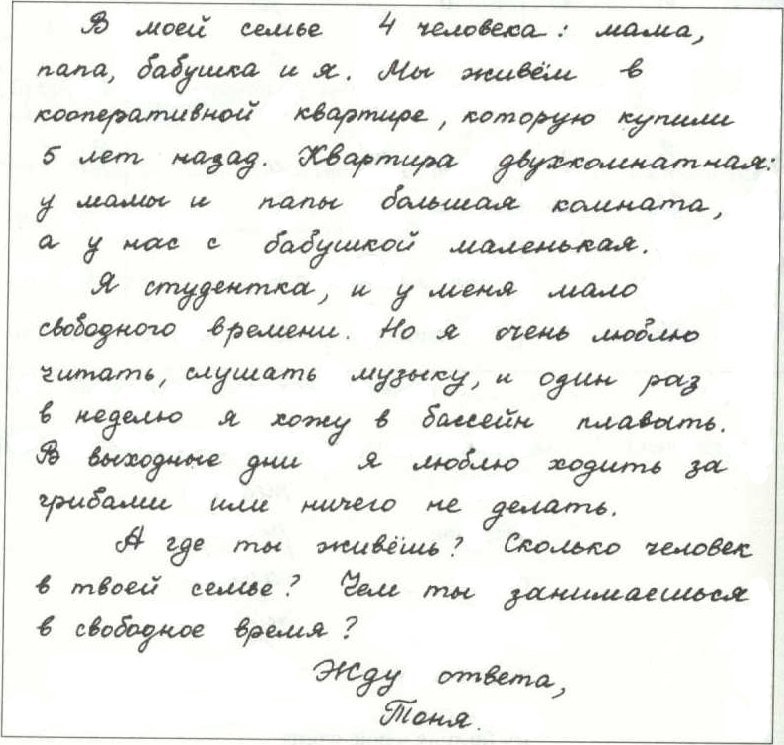 В моей семье 4 человека: мама,
папа, бабушка и я. Мы живём в
кооперативной квартире, которую купили
5 лет назад. Квартира двухкомнатная:
у мамы и папы большая комната,
а у нас с бабушкой маленькая.
Я студентка, и у меня мало
свободного времени. Но я очень люблю
читать, слушать музыку, и один раз
в неделю я хожу в бассейн плавать.
В выходные дни я люблю ходить за
грибами или ничего не делать.
А где ты живёшь? Сколько человек
в твоей семье? Чем ты занимаешься
в свободное время?
Жду ответа,
Тоня.